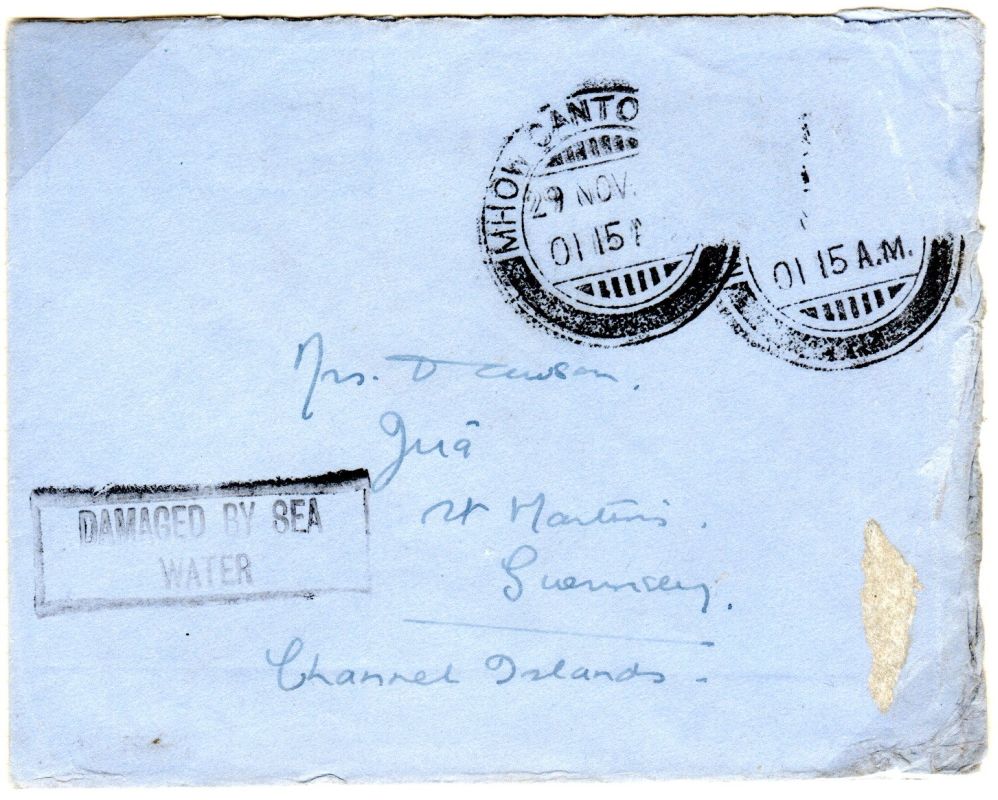 MHOW CANTO
29 NOV.
01 15
01 15 A.M.
Mrs. Dawson.
St Martins.
Guernsey.
Channel Islands.
DAMAGED BY SEA
WATER